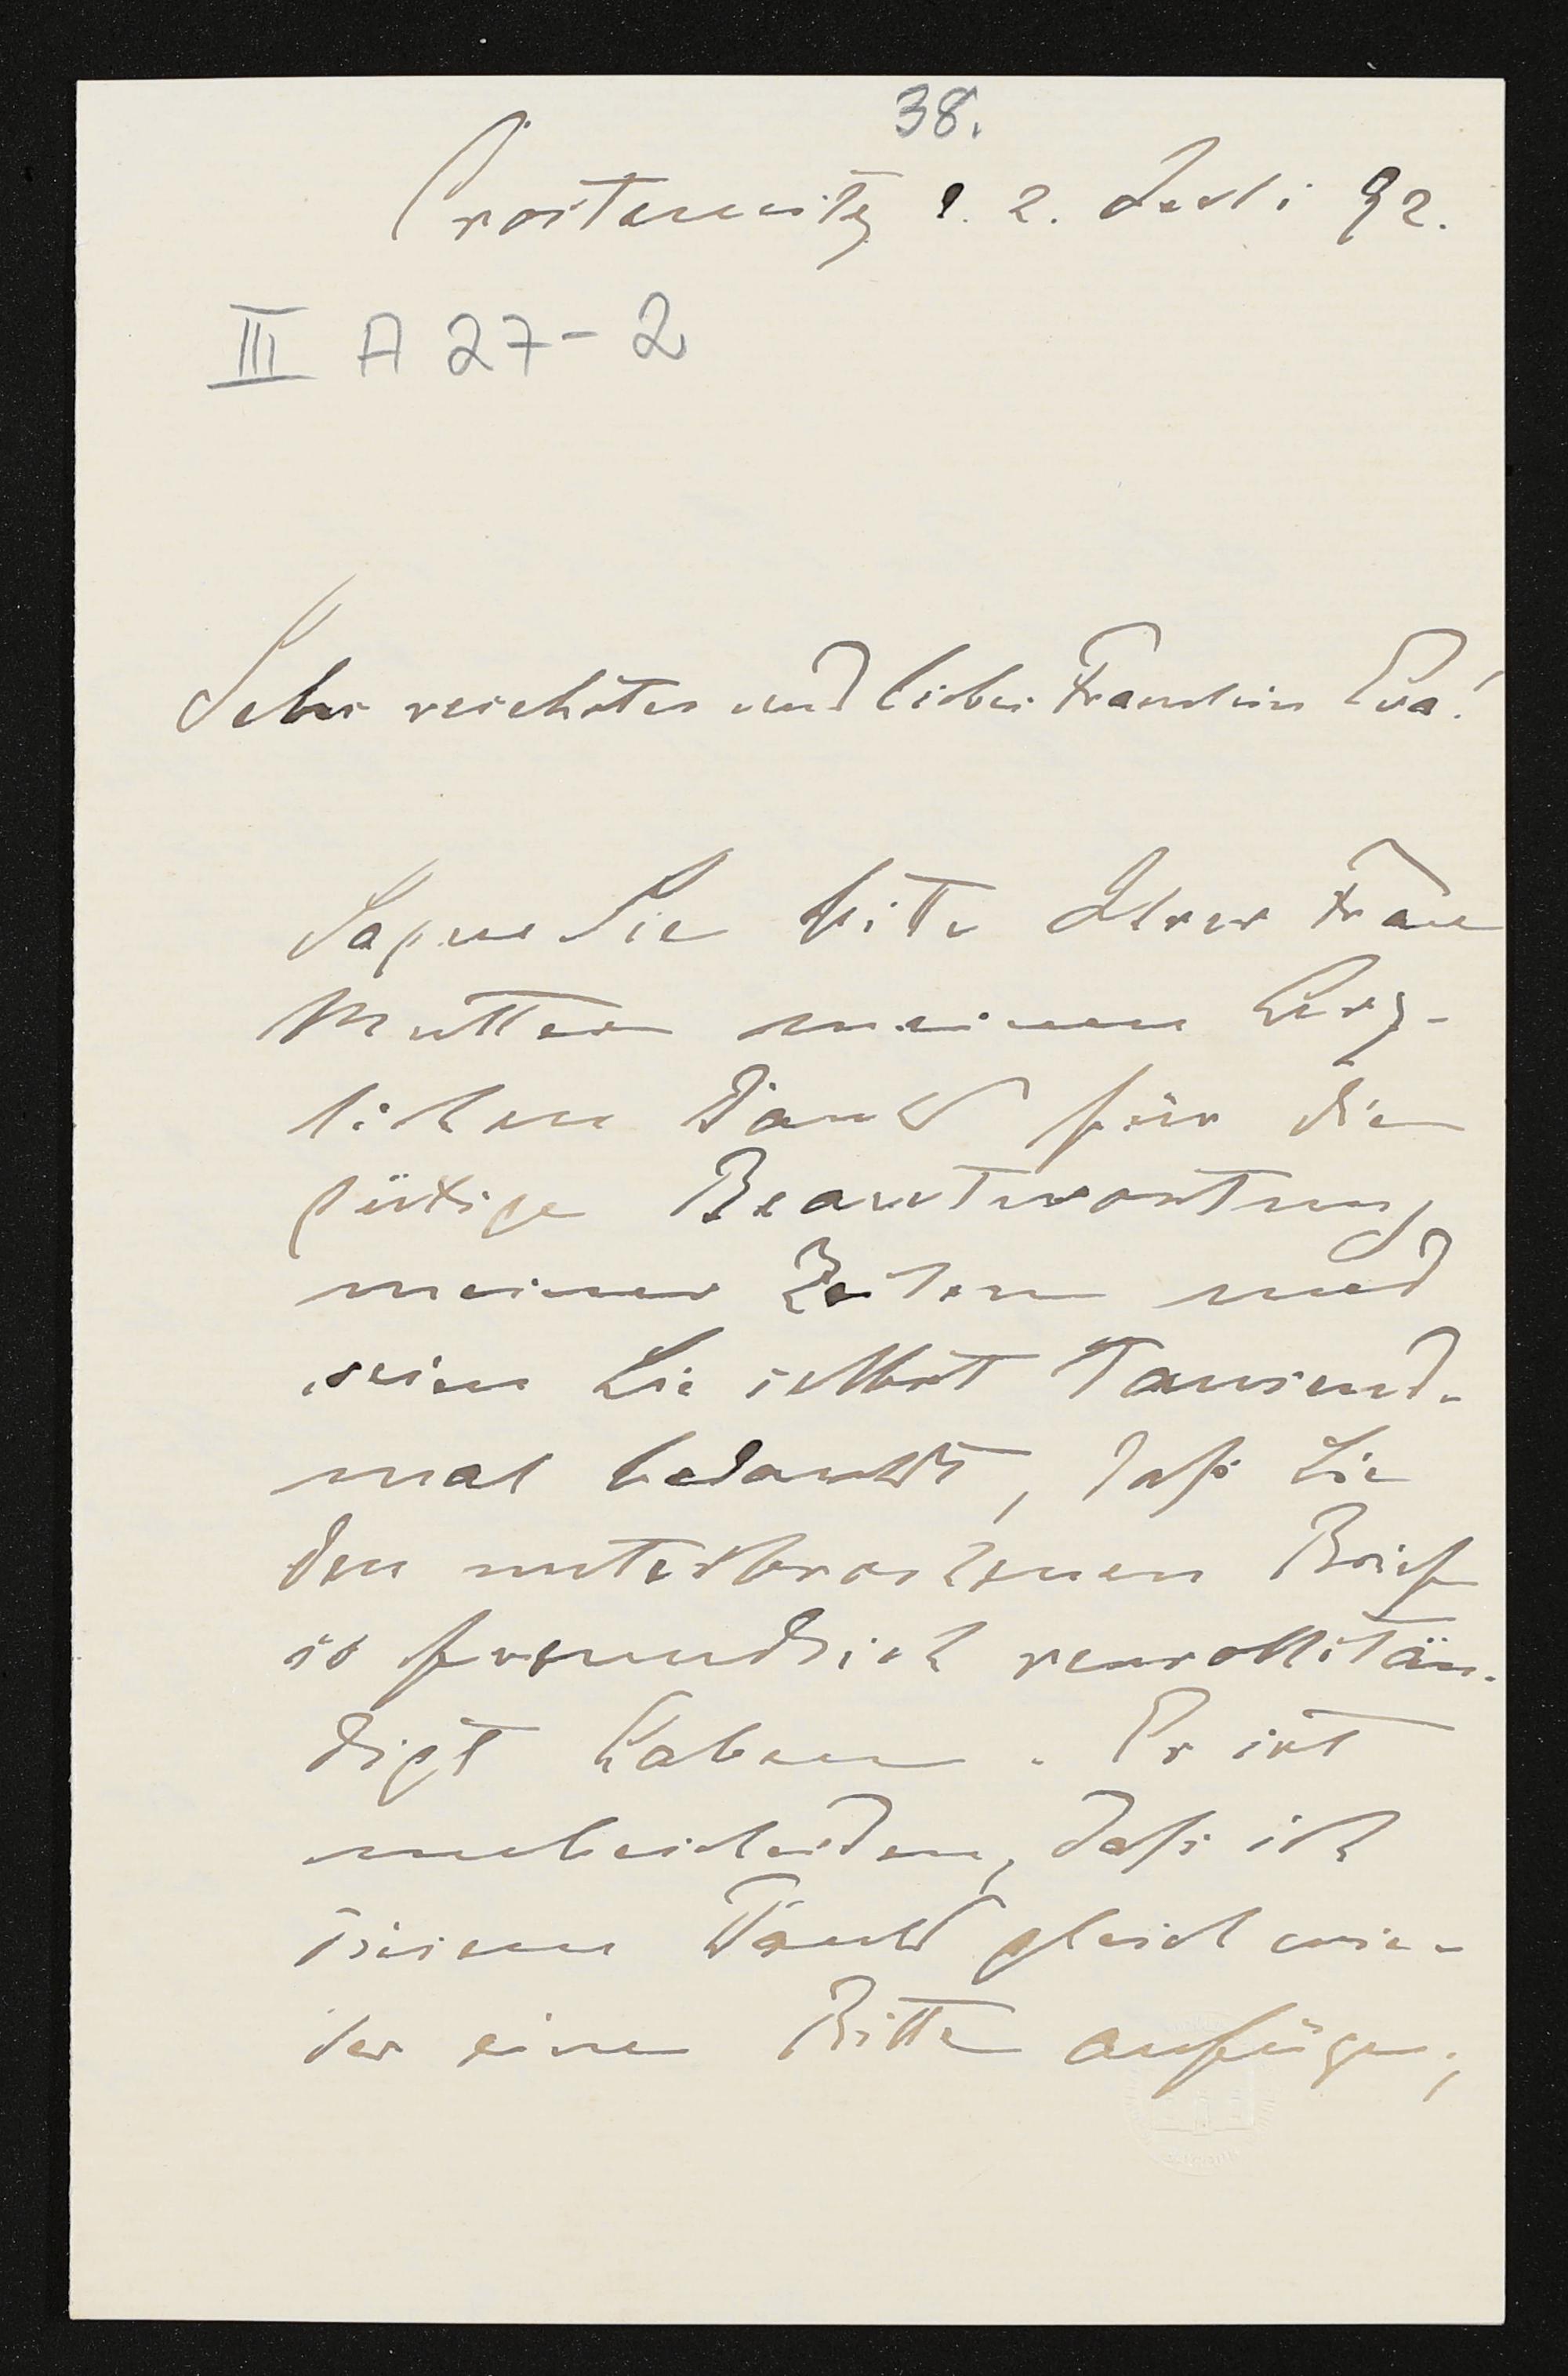 38.
Crostewitz d. 2. Juli 92.
III A 27-2
Sehr verehrtes und liebes Fraeulein Eva!
Sagen Sie bitte Ihrer Frau
Mutter meinen herz-
lichen Dank für die
gütige Beantwortung
meiner Zeilen und
seien Sie selbst Tausend-
mal bedankt, daß Sie
den unterbrochenen Brief
so freundlich vervollstän-
digt haben. Er ist
unbescheiden, daß ich
diesem Dank gleich wie-
der eine Bitte anfüge;